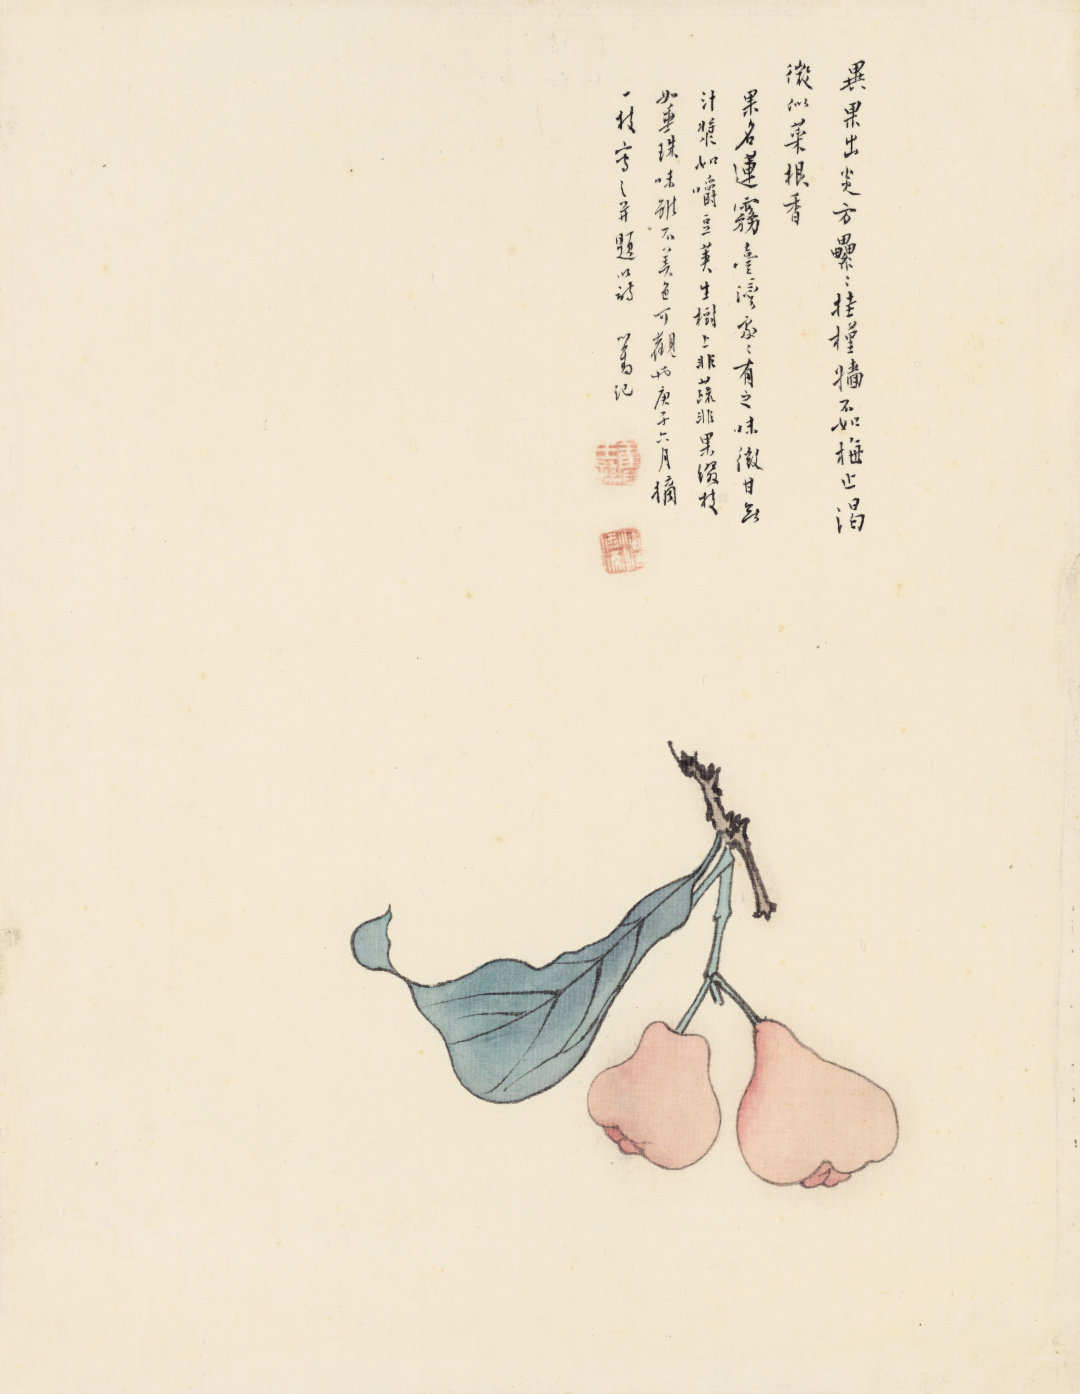 異果出炎方纍〻挂槿牆不如梅止渴
微似菜根香
果名蓮霧臺灣處〻有之味微甘無
汁漿如嚼豆莢生樹上非蔬非果綴枝
如垂珠味雖不美色可觀也庚子六月摘
一枝寫之并題以詩 溥心畬記